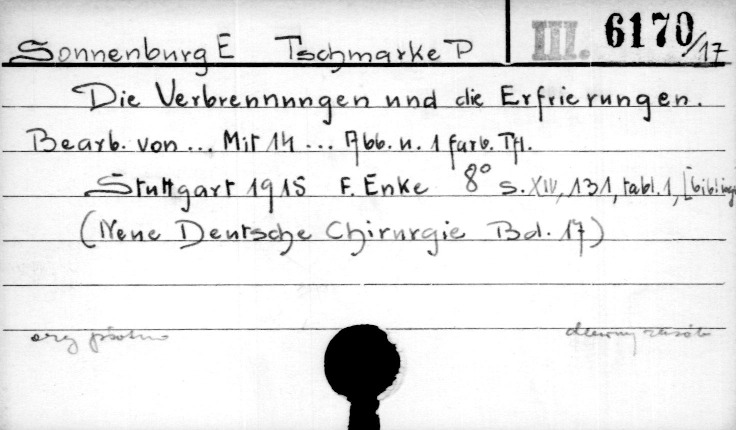 Sonnenburg E Tschmarke P III. 6170/17
Die Verbrennungen und die Erfrierungen.
Bearb. von ... Mit 14 ... Abb. u. 1 farb. Tfl.
Stuttgart 1915 F. Enke 8° s. XIV, 131, tabl. 1,
(Neue Deutsche Chirurgie Bd. 17)